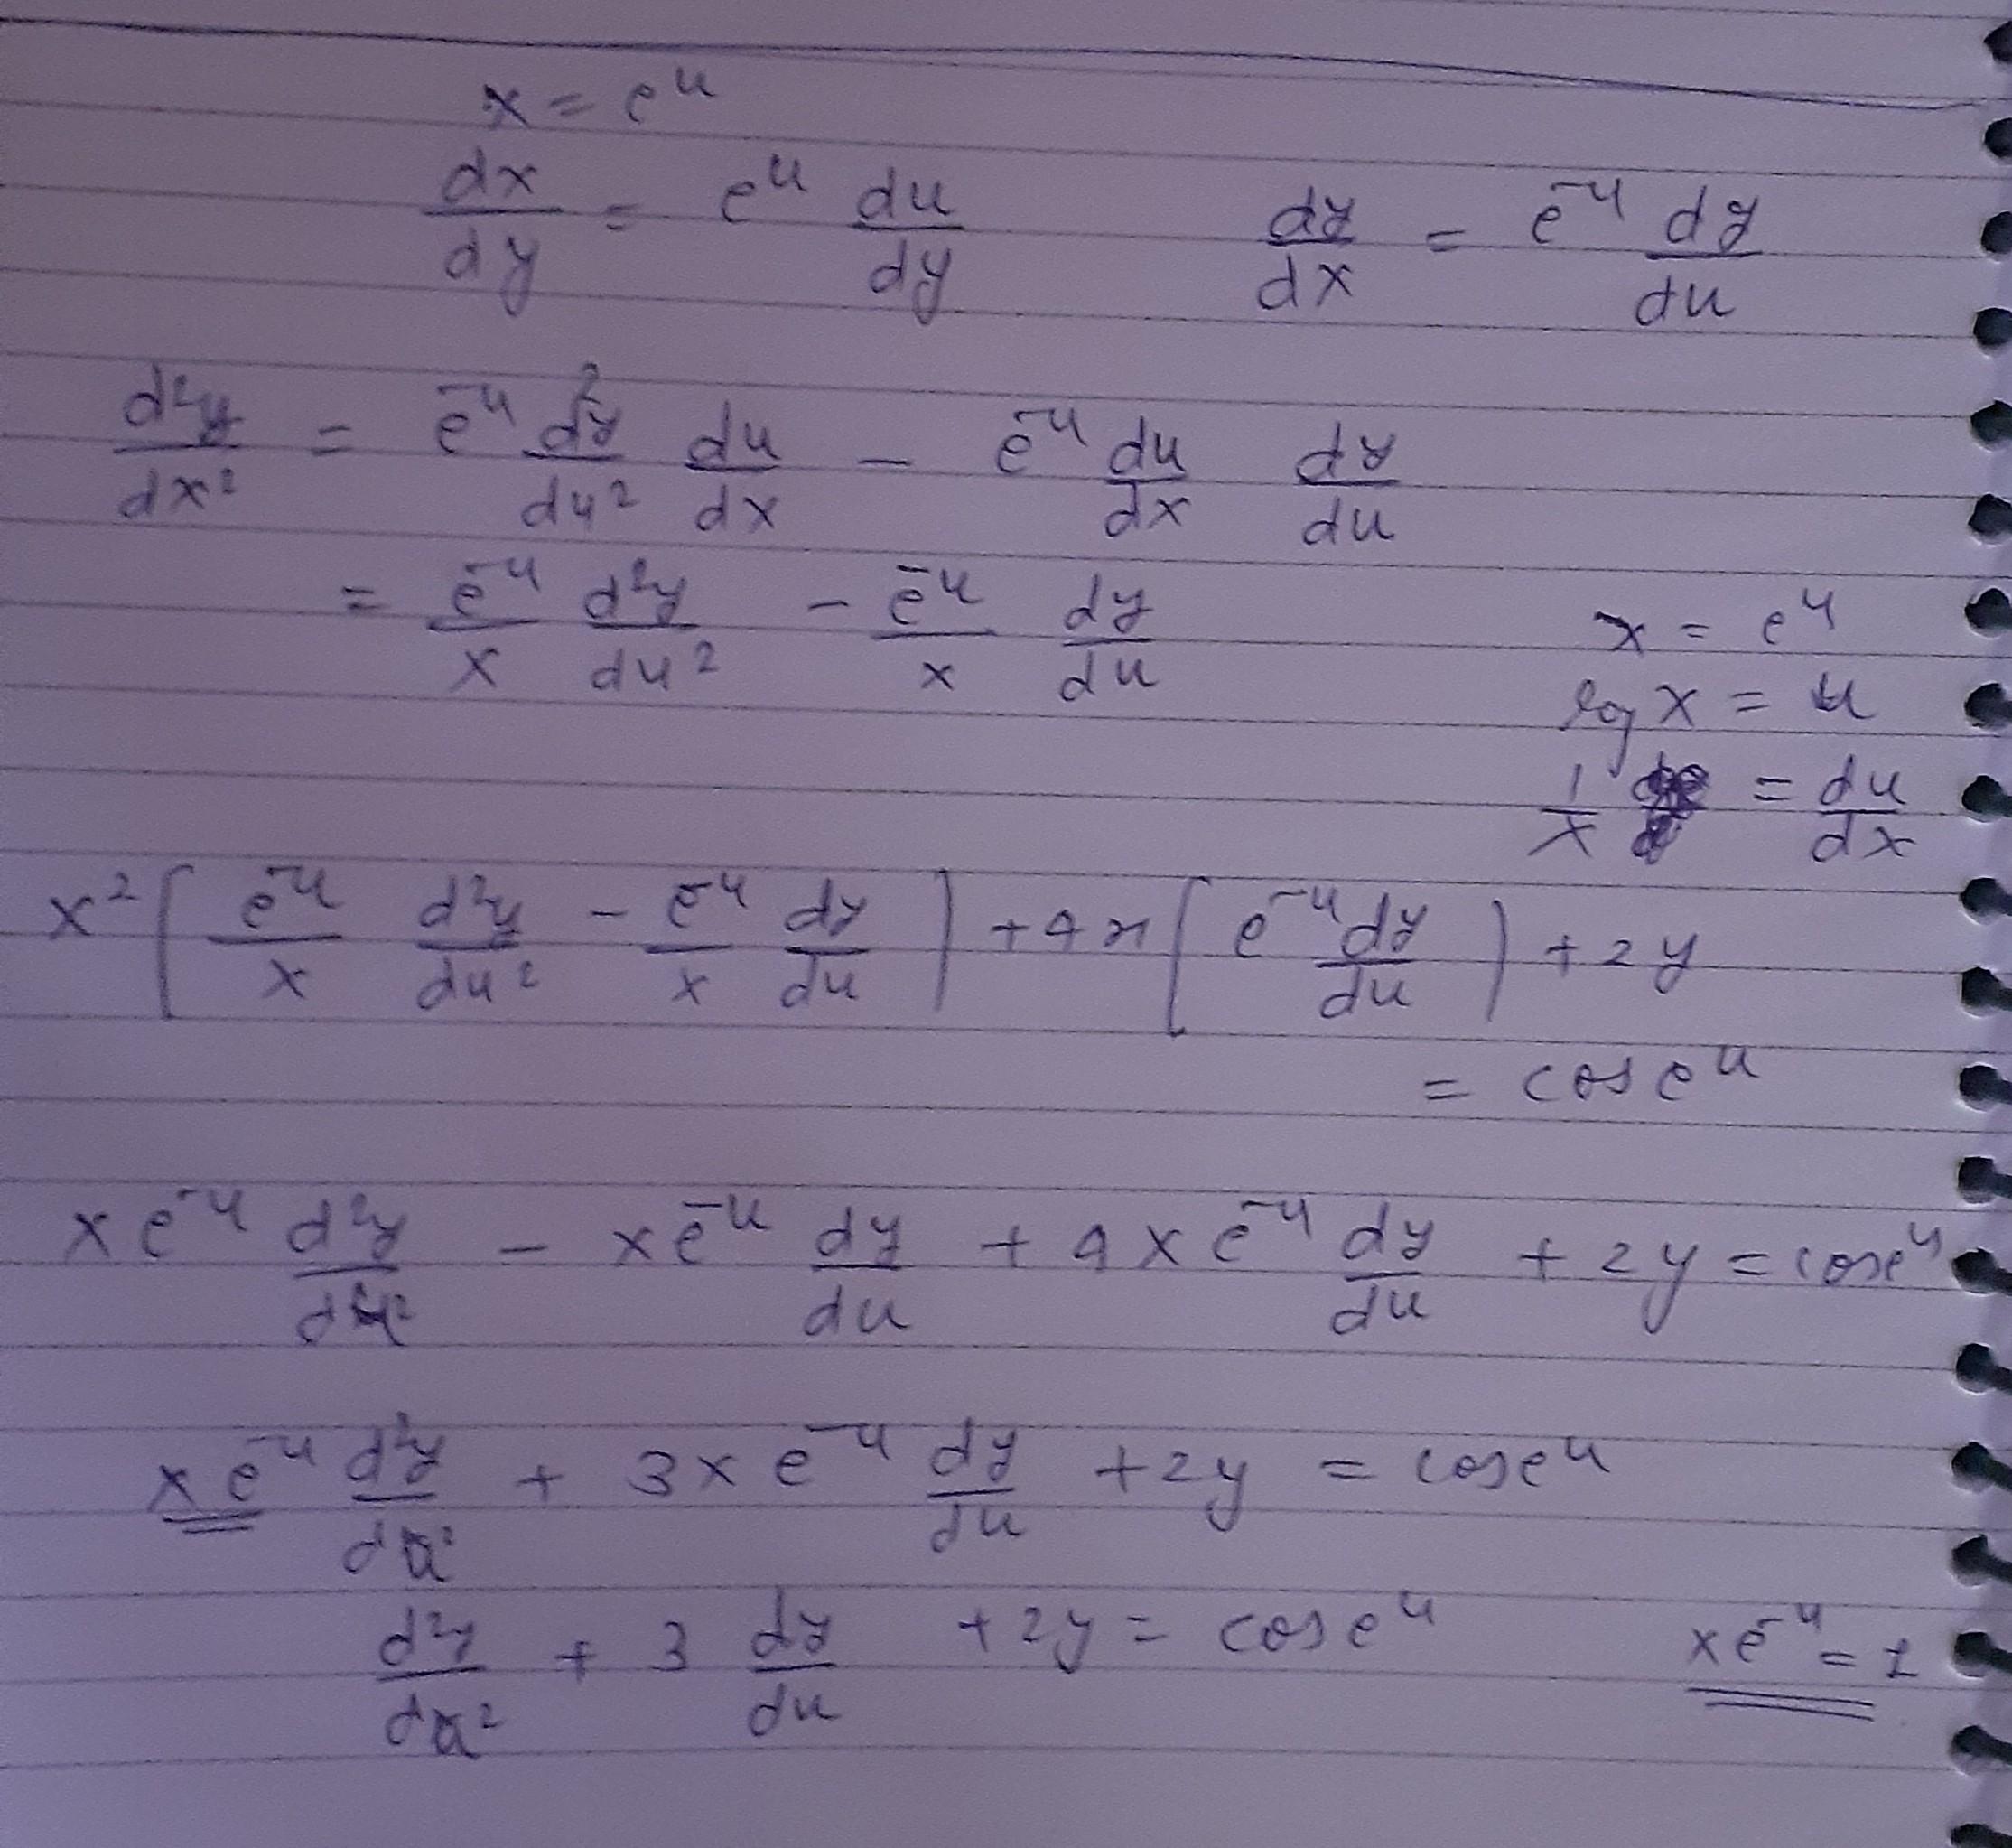 x = e^u
dx/dy = e^u du/dy    dy/dx = e^-u dy/du
d²y/dx² = e^-u d²y/du² du/dx - e^-u du/dx dy/du
= e^-u/x d²y/du² - e^-u/x dy/du
x = e^u
log x = u
1/x = du/dx
x² [ e^-u/x d²y/du² - e^-u/x dy/du ] + 4x [ e^-u dy/du ) + 2y
= cos e^u
x e^-u d²y/du² - x e^-u dy/du + 4x e^-u dy/du + 2y = cos e^u
x e^-u d²y/du² + 3x e^-u dy/du + 2y = cos e^u
d²y/du² + 3 dy/du + 2y = cos e^u    x e^-u = 1